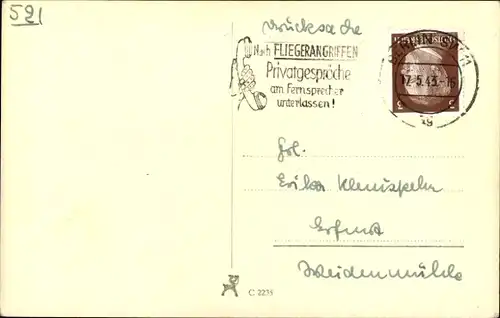 521
Drucksache
Nach FLIEGERANGRIFFEN
Privatgespräche
am Fernsprecher
unterlassen!
BERLIN SW 11
17.5.43.-16
Frl.
Erika
Erfurt
Weidenmühle
C 2235